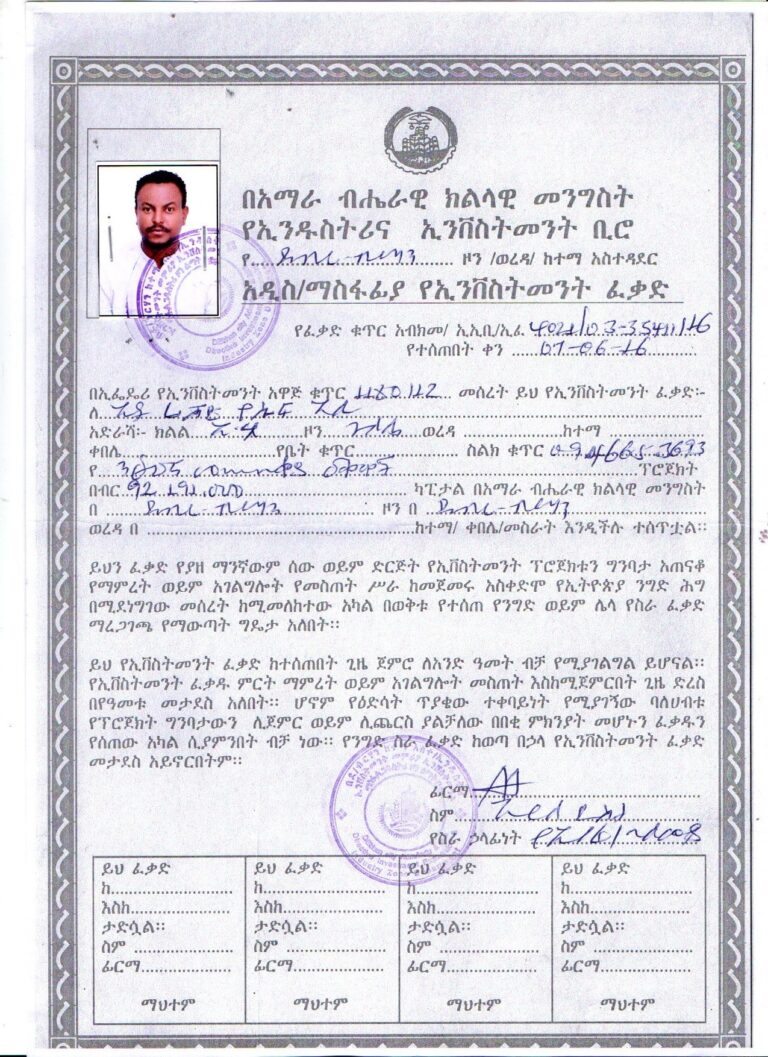 በአማራ ብሔራዊ ክልላዊ መንግስት
የኢንዱስትሪና ኢንቨስትመንት ቢሮ
የ............ ዞን /ወረዳ/ ከተማ አስተዳደር
አዲስ/ማስፋፊያ የኢንቨስትመንት ፈቃድ
የፈቃድ ቁጥር አብክመ/ ኢኢቢ/ኢፈ
የተሰጠበት ቀን ...07-06-16...
በኢፌዴሪ የኢንቨስትመንት አዋጅ ቁጥር ... መሰረት ይህ የኢንቨስትመንት ፈቃድ፡-
ለ............
አድራሻ፡- ክልል............ ዞን ............ ወረዳ ............ከተማ ............
ቀበሌ............የቤት ቁጥር............ ስልክ ቁጥር
የ............ፕሮጀክት
በብር ............ ካፒታል በአማራ ብሔራዊ ክልላዊ መንግስት
በ ............ ዞን በ ............
ወረዳ በ ............ከተማ/ ቀበሌ/መስራት እንዲችሉ ተሰጥቷል።
ይህን ፈቃድ የያዘ ማንኛውም ሰው ወይም ድርጅት የኢቨስትመንት ፕሮጀክቱን ግንባታ አጠናቆ
የማምረት ወይም አገልግሎት የመስጠት ሥራ ከመጀመሩ አስቀድሞ የኢትዮጵያ ንግድ ሕግ
በሚደነግገው መሰረት ከሚመለከተው አካል በወቅቱ የተሰጠ የንግድ ወይም ሌላ የስራ ፈቃድ
ማረጋገጫ የማውጣት ግዴታ አለበት።
ይህ የኢቨስትመንት ፈቃድ ከተሰጠበት ጊዜ ጀምሮ ለአንድ ዓመት ብቻ የሚያገልግል ይሆናል።
የኢቨስትመንት ፈቃዱ ምርት ማምረት ወይም አገልግሎት መስጠት እስከሚጀምርበት ጊዜ ድረስ
በየዓመቱ መታደስ አለበት። ሆኖም የዕድሳት ጥያቄው ተቀባይነት የሚያገኝው ባለሀብቱ
የፕሮጀክት ግንባታውን ሊጀምር ወይም ሊጨርስ ያልቻለው በበቂ ምክንያት መሆኑን ፈቃዱን
የሰጠው አካል ሲያምንበት ብቻ ነው። የንግድ ስራ ፈቃድ ከወጣ በኃላ የኢንቨስትመንት ፈቃድ
መታደስ አይኖርበትም።
ፊርማ............
ስም............
የስራ ኃላፊነት
ይህ ፈቃድ ይህ ፈቃድ ይህ ፈቃድ ይህ ፈቃድ
ከ............ ከ............ ከ............ ከ............
እስከ............ እስከ............ እስከ............ እስከ............
ታድሷል። ታድሷል። ታድሷል። ታድሷል።
ስም ............ ስም ............ ስም ............ ስም ............
ፊርማ............ ፊርማ............ ፊርማ............ ፊርማ............
ማህተም ማህተም ማህተም ማህተም